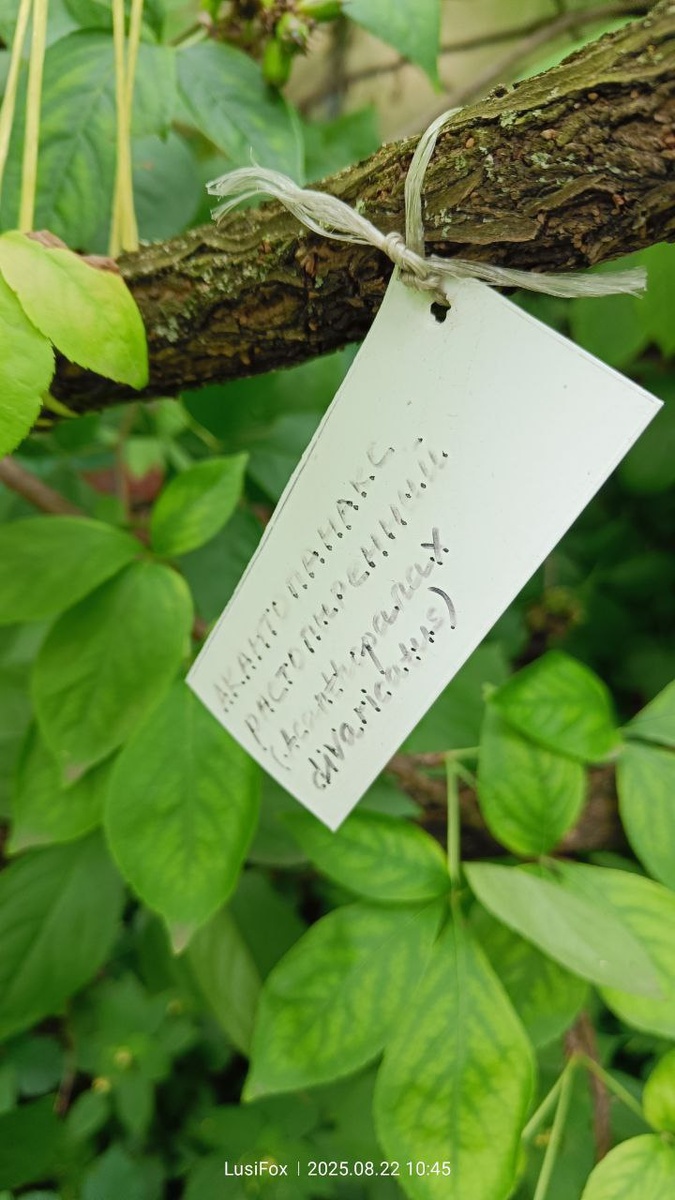 АКАНТОПАНАКС
РАСТОПЫРЕННЫЙ
(Acanthopanax
divaricatus)
LusiFox | 2025.08.22 10:45